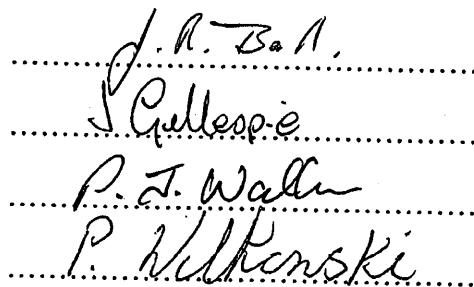 J. R. Ball.
J Gillespie
P. J. Waller
P. Witkowski